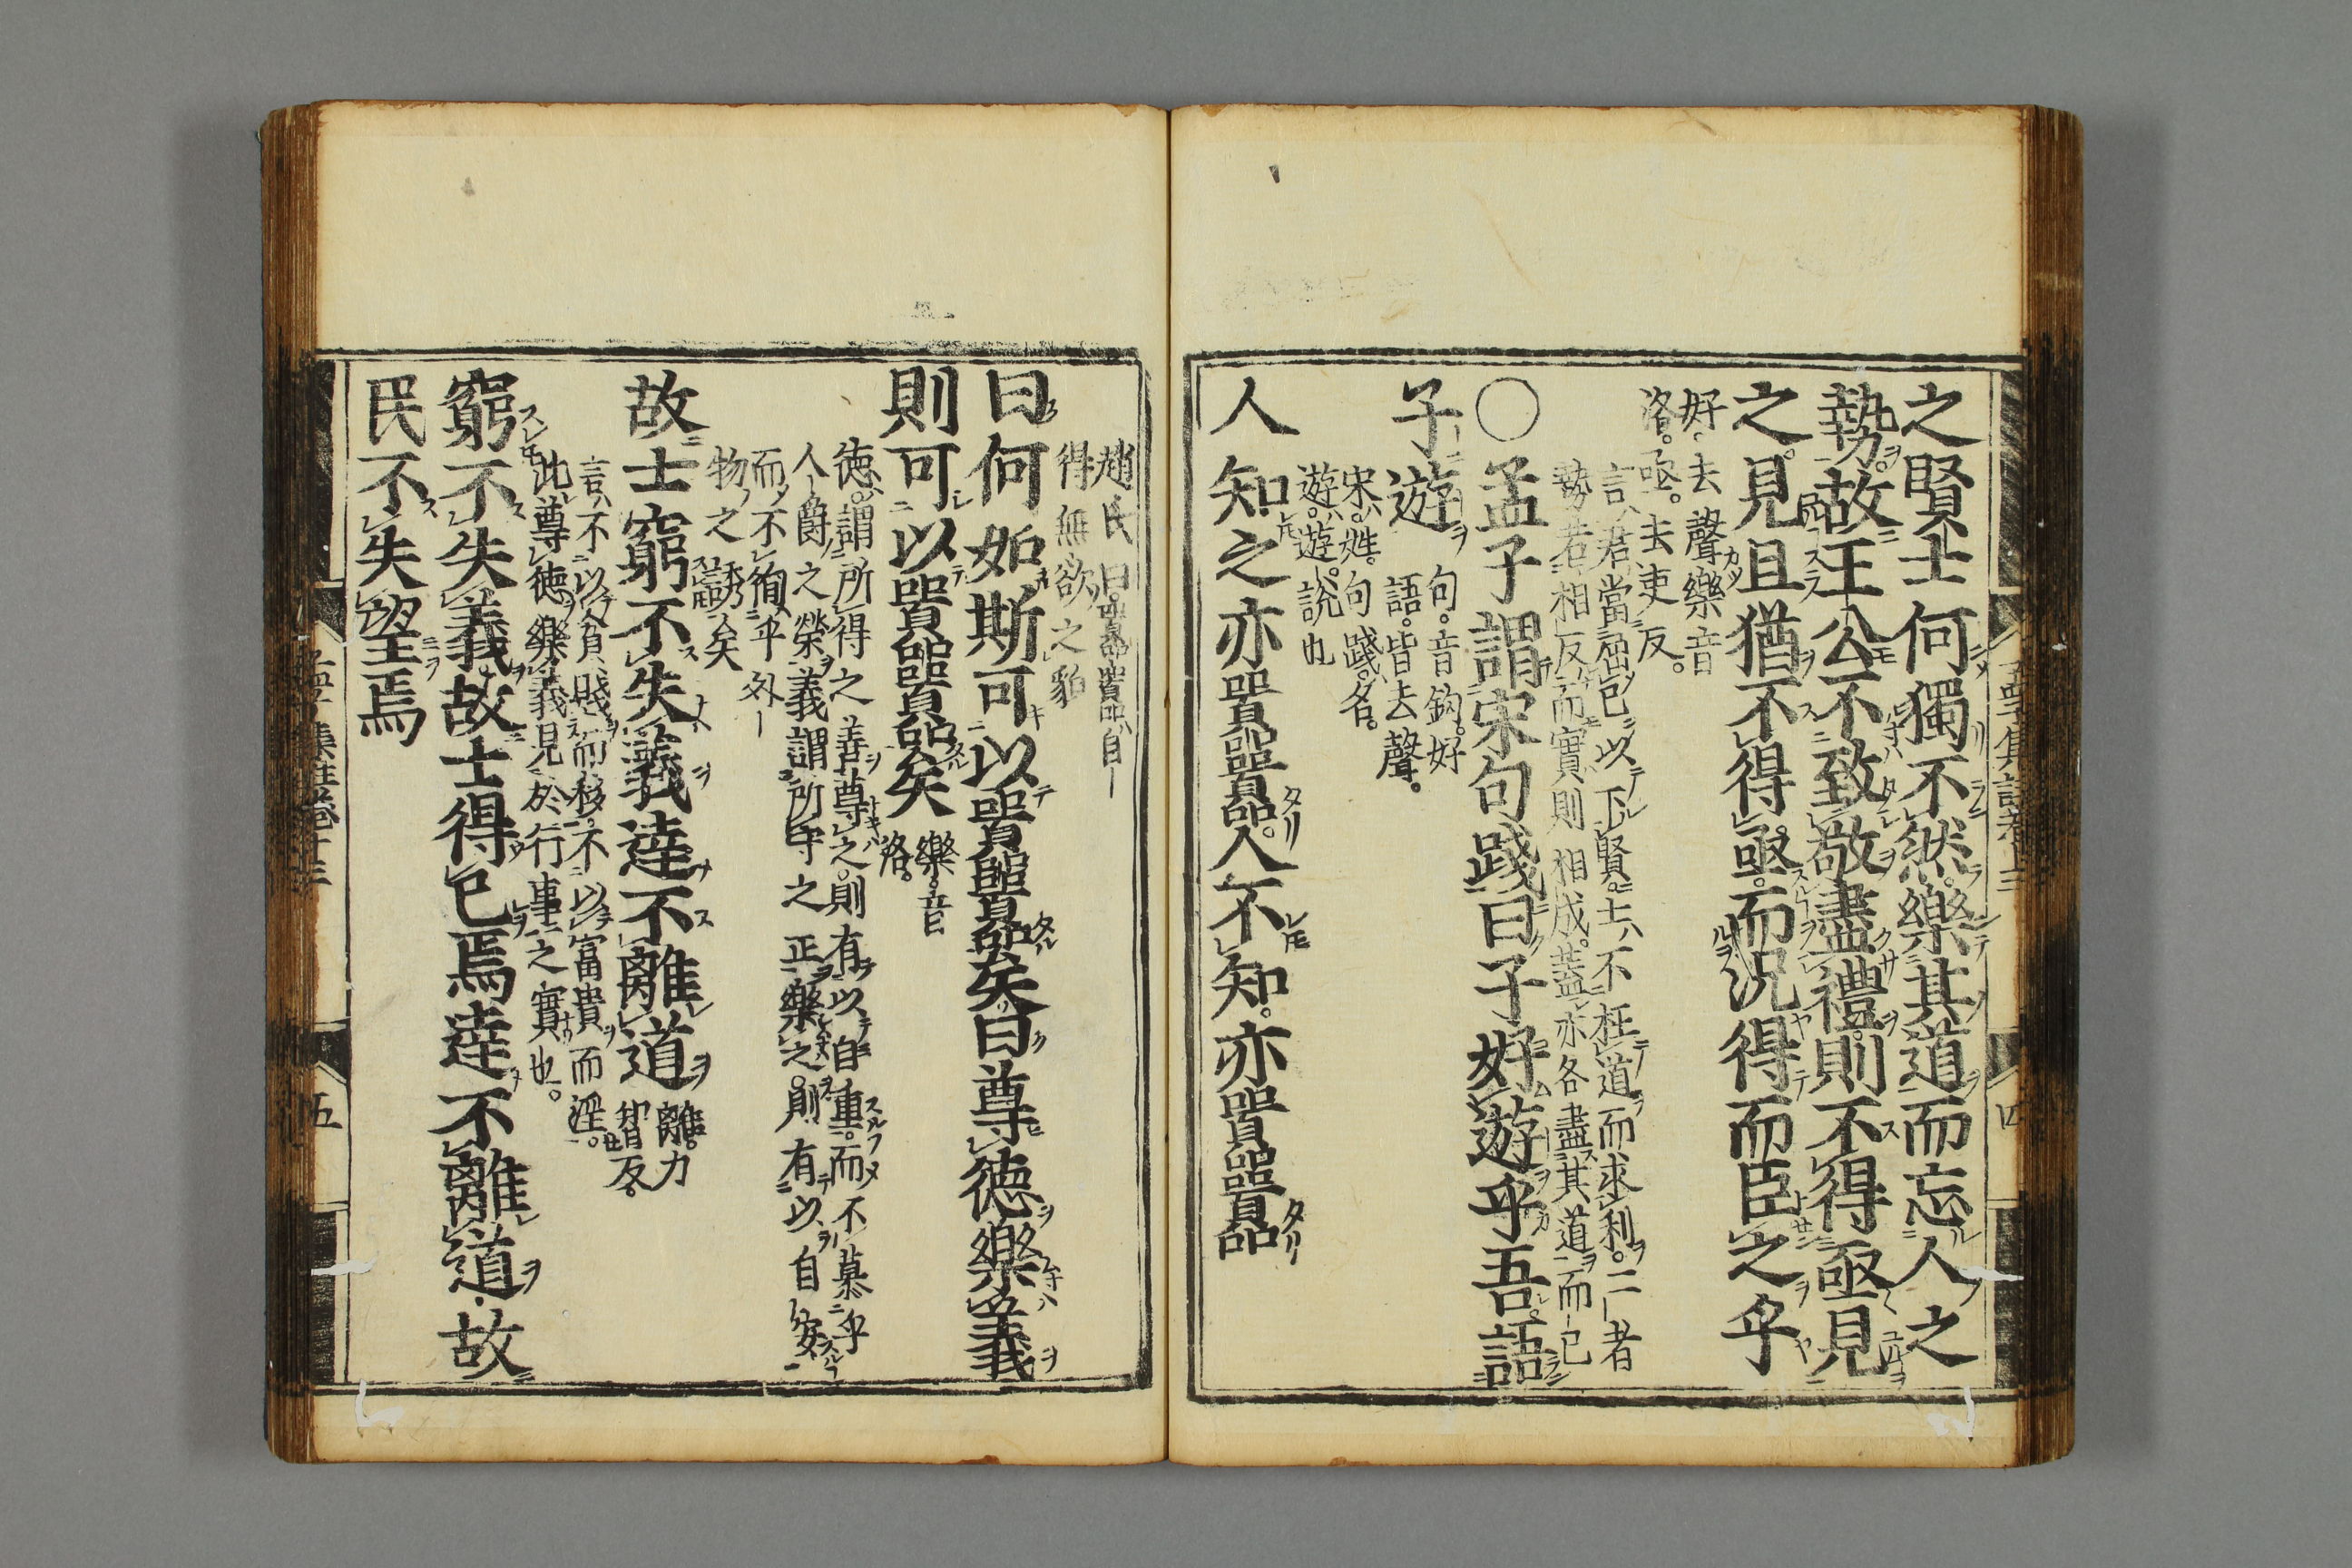 之賢士何獨不然。樂其道而忘人之
勢。故王公不致敬盡禮。則不得亟見
之。見且猶不得亟。而況得而臣之乎
好、去聲樂音
洛。亟。去吏反。
言、君當屈己以下賢。士、不枉道而求利。二者
勢若相反、而實則相成。蓋亦各盡其道而已
○孟子謂宋句踐曰子好遊乎吾語
子遊
句。音鈎。好
語。皆去聲。
宋。姓。句踐。名。
遊。遊說也
人知之亦囂囂。人不知。亦囂囂
孟子集註卷十三
四
趙氏曰囂囂、自
得無欲之貌
曰何如斯可以囂囂矣曰尊德樂義
則可以囂囂矣
樂。音
洛。
德。謂所得之善尊之。則有以自重。而不慕乎
人爵之榮義謂所守之正樂之。則有以自安
而不徇乎外
物之誘矣
故士窮不失義達不離道
離。力
智反。
言、不以貧賤而移。不以富貴而淫。
此尊德樂義見於行事之實也。
窮不失義故士得己焉達不離道故
民不失望焉
孟子集註卷十三
五